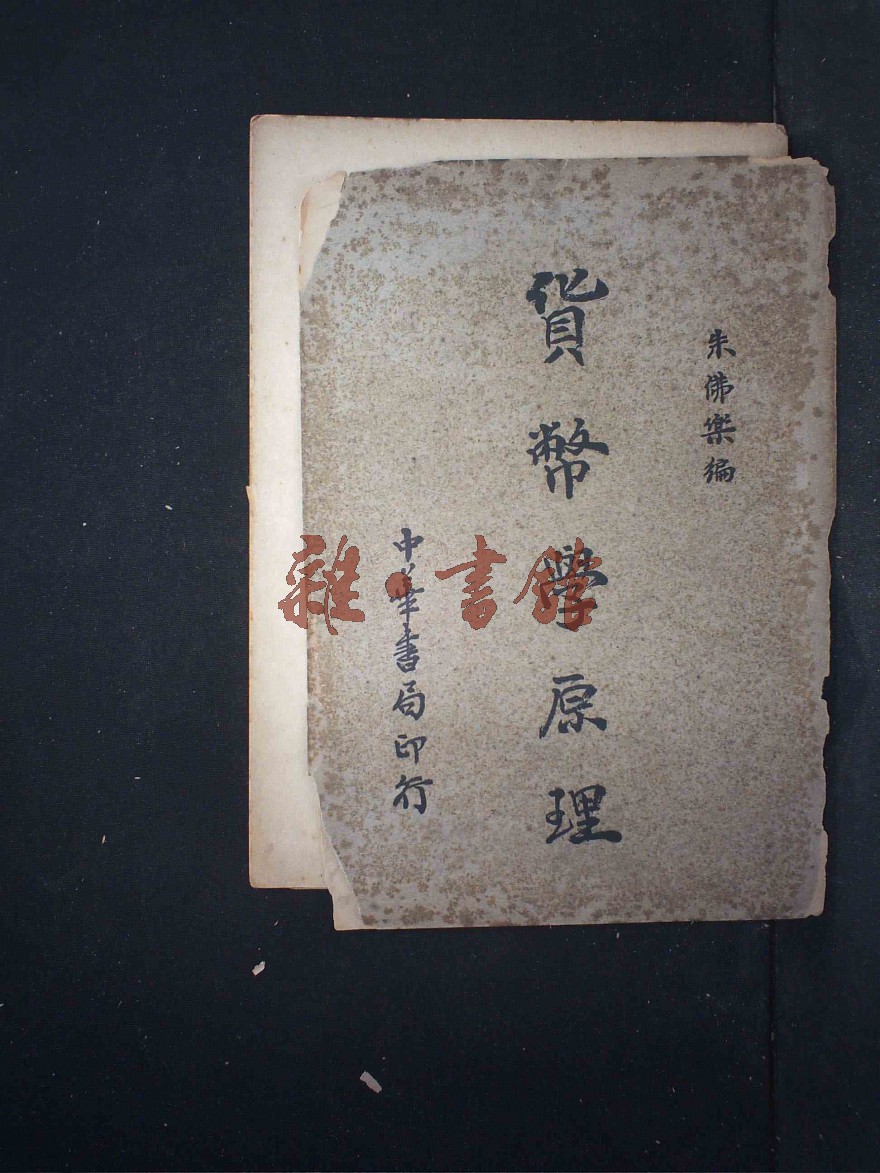 朱佛樂編
貨幣學原理
中華書局印行
雜·書館